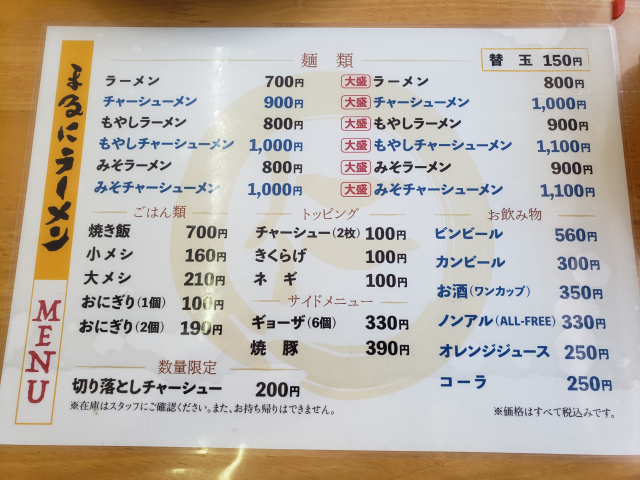 まるにラーメン
MENU
麺 類
替 玉 150円
ラーメン 700円
チャーシューメン 900円
もやしラーメン 800円
もやしチャーシューメン 1,000円
みそラーメン 800円
みそチャーシューメン 1,000円
大盛 ラーメン 800円
大盛 チャーシューメン 1,000円
大盛 もやしラーメン 900円
大盛 もやしチャーシューメン 1,100円
大盛 みそラーメン 900円
大盛 みそチャーシューメン 1,100円
ごはん類
焼き飯 700円
小メシ 160円
大メシ 210円
おにぎり(1個) 100円
おにぎり(2個) 190円
数量限定
切り落としチャーシュー 200円
※在庫はスタッフにご確認ください。また、お持ち帰りはできません。
トッピング
チャーシュー(2枚) 100円
きくらげ 100円
ネ ギ 100円
サイドメニュー
ギョーザ(6個) 330円
焼 豚 390円
お飲み物
ビンビール 560円
カンビール 300円
お酒(ワンカップ) 350円
ノンアル(ALL-FREE) 330円
オレンジジュース 250円
コーラ 250円
※価格はすべて税込みです。